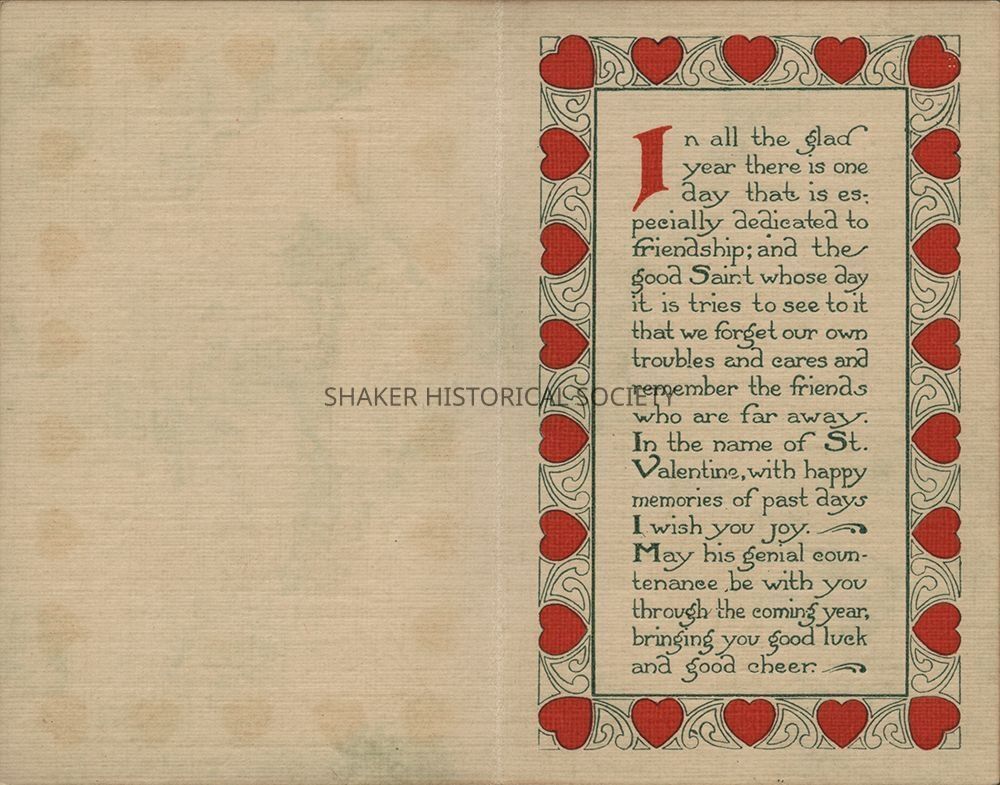 In all the glad
year there is one
day that is es-
pecially dedicated to
friendship; and the
good Saint whose day
it is tries to see to it
that we forget our own
troubles and cares and
remember the friends
who are far away.
In the name of St.
Valentine, with happy
memories of past days
I wish you joy.
May his genial coun-
tenance be with you
through the coming year,
bringing you good luck
and good cheer.
SHAKER HISTORICAL SOCIETY